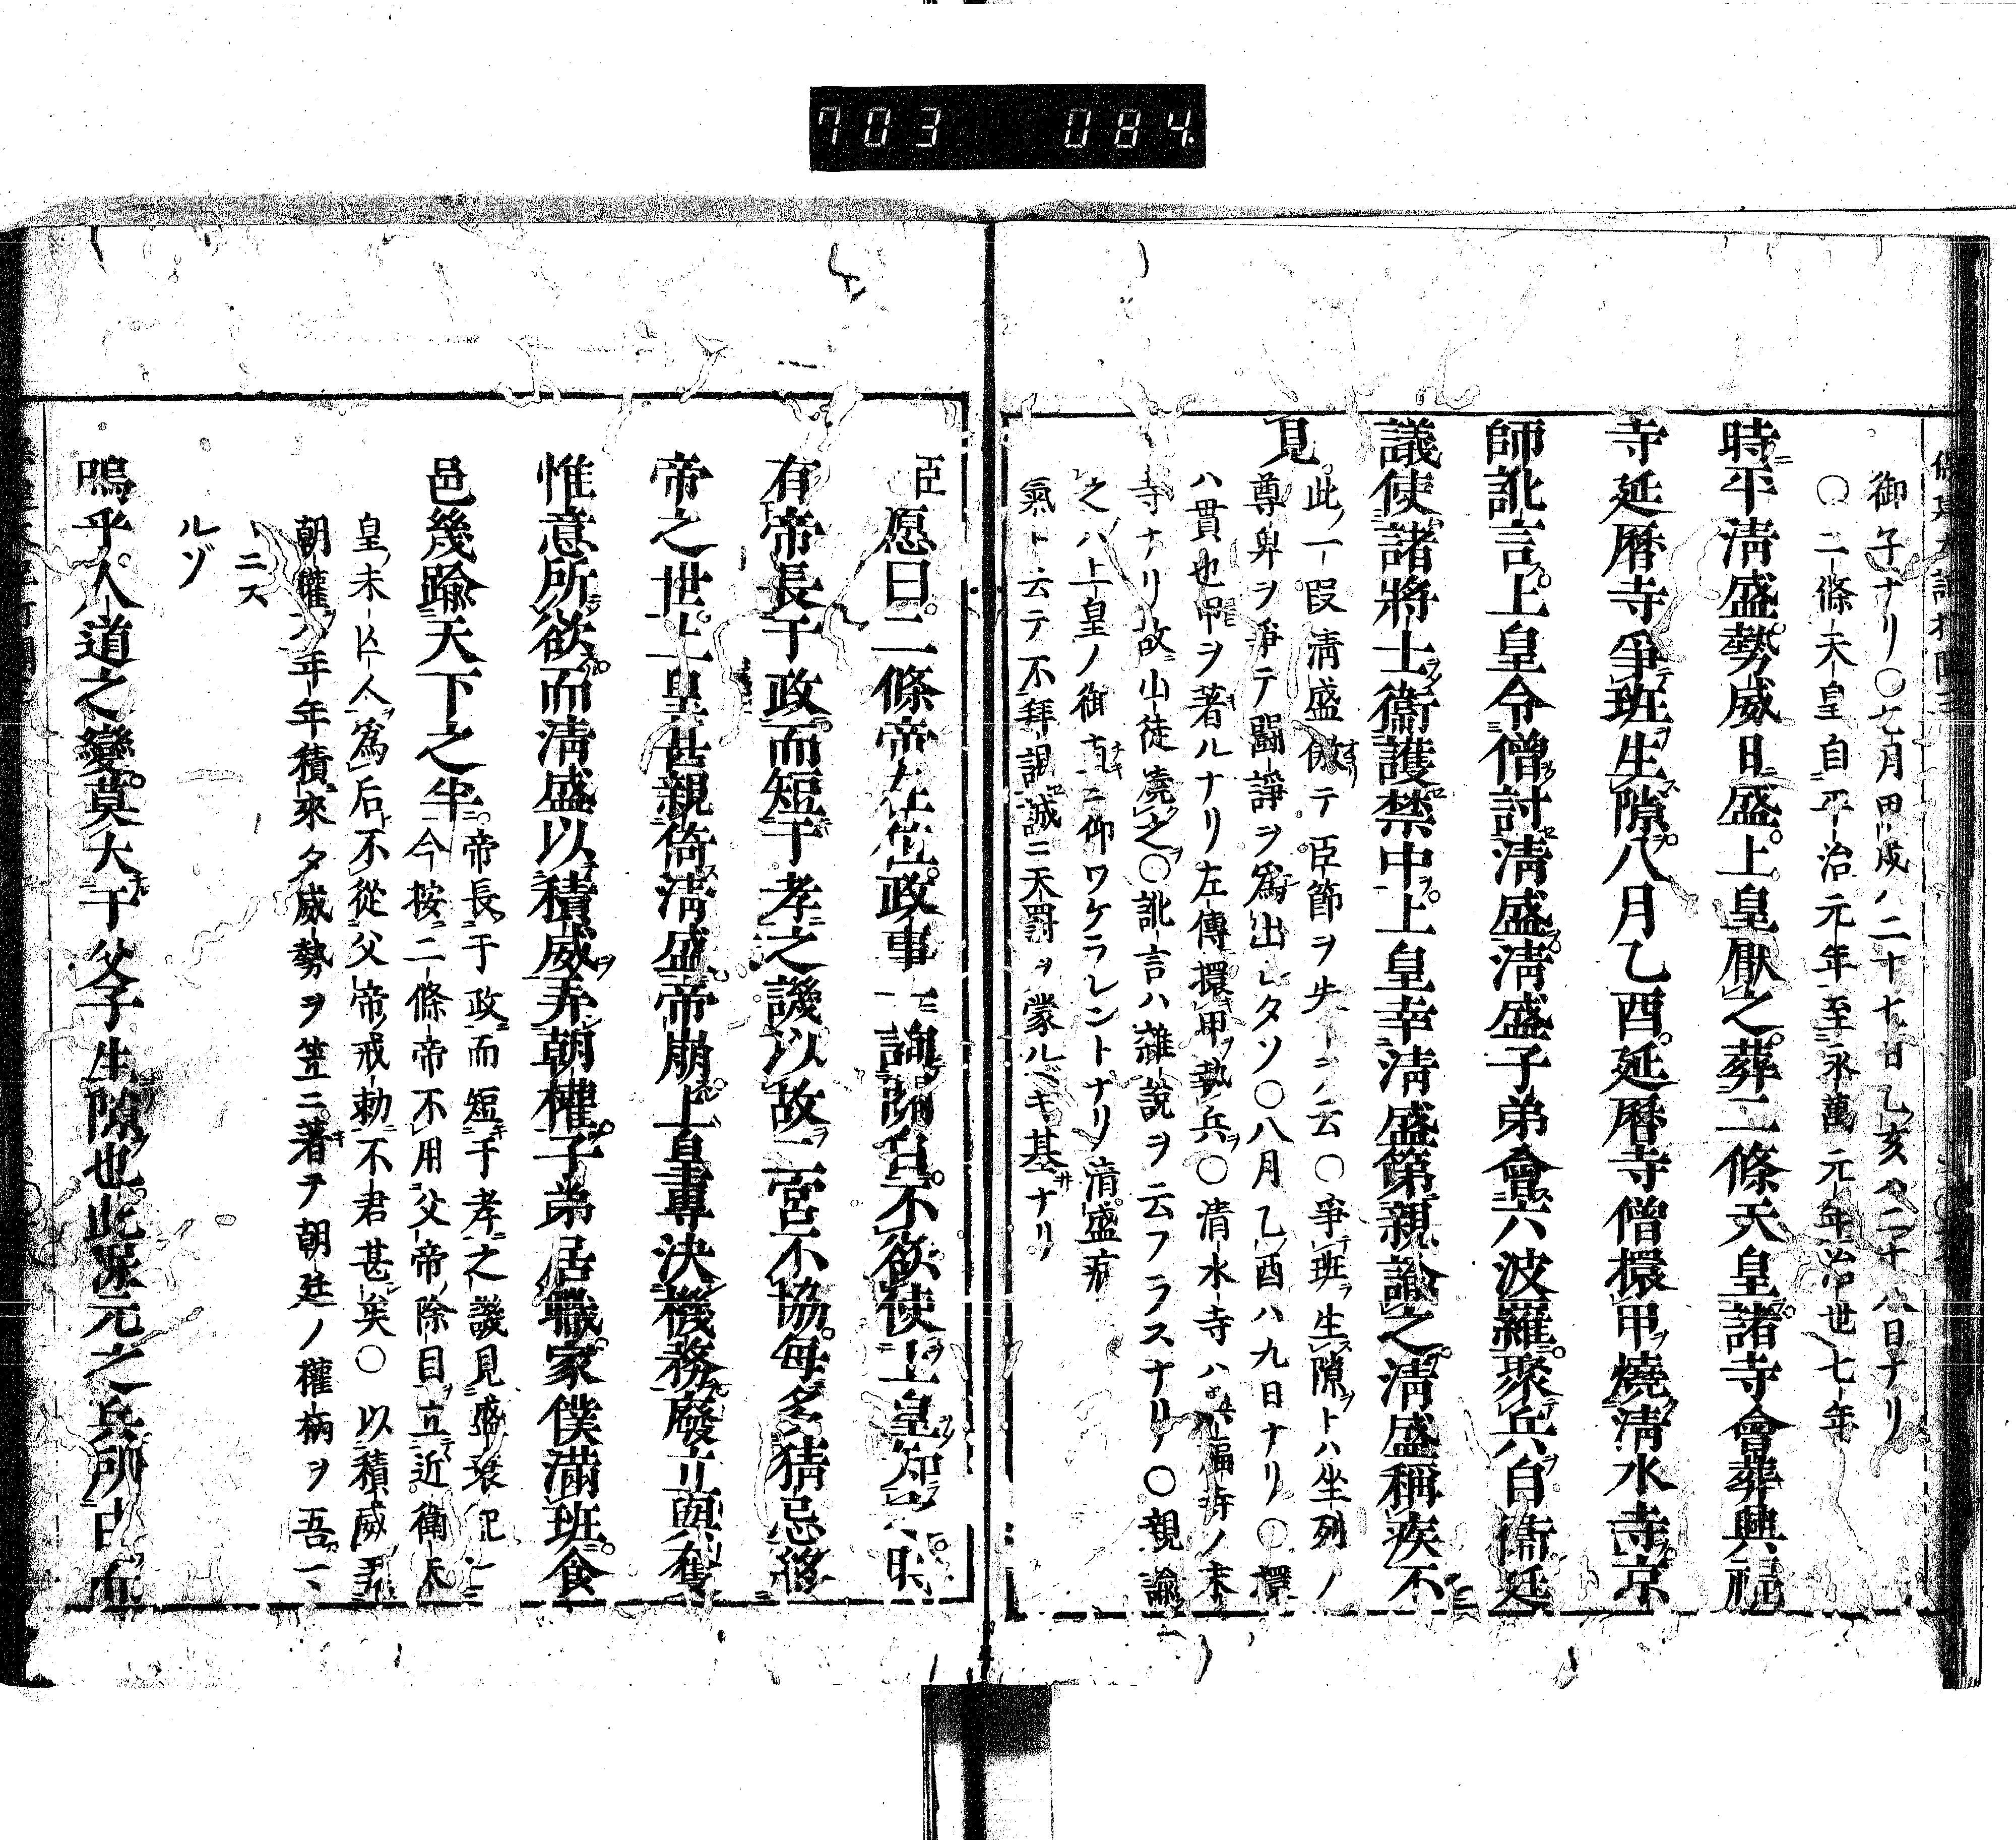 703 084
御子ナリ〇七月甲戌ハ二十七日乙亥ハ二十八日ナリ
〇二條天皇自平治元年至永萬元年治世七年
時平淸盛勢威日盛上皇厭之葬二條天皇諸寺會葬興福
寺延曆寺爭班生隙八月乙酉延曆寺僧擐甲燒淸水寺京
師訛言上皇令僧討淸盛淸盛子弟會六波羅聚兵自衞廷
議使諸將士衞護禁中上皇幸淸盛第親諭之淸盛稱疾不
見
此ノ一段淸盛傲テ臣節ヲ失ーニノ云〇爭班生隙トハ坐列ノ
尊卑ヲ爭テ鬪諍ヲ爲出シタソ〇八月乙酉ハ九日ナリ〇擐
ハ貫也甲ヲ著ルナリ左傳擐甲執兵〇淸水寺ハ興福寺ノ末
寺ナリ故山徒燒之〇訛言ハ雜說ヲ云フラスナリ〇親諭
之ハ上皇ノ御直ニ仰ワケラレントナリ淸盛病
氣ト云テ不拜謁誠ニ天罰ヲ蒙ルベキ基ナリ
臣愿曰二條帝在位政事一詢 不欲使上皇知
有帝長于政而短于孝之譏以故二宮不協每多猜忌終
帝之世上皇甚親倚淸盛帝崩上皇專決機務廢立與奪
惟意所欲而淸盛以積威弄朝權子弟居職家僕滿班食
邑幾踰天下之半
帝長于政而短于孝之譏見盛衰記
今按二條帝不用父帝ノ除目立近衞天
皇未亡人爲后不從父帝戒勅不君甚矣〇以積威弄
朝權六年年積來タ威勢ヲ笠ニ著テ朝廷ノ權柄ヲ吾
ニス
ルゾ
嗚乎人道之變莫大于父子生隙也此保元之兵所由而